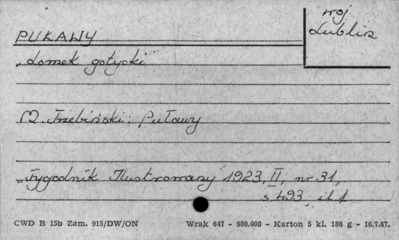 PUKAWY
woj
Lublin
"domek gotycki"
M. Trzebiński: Puławy
"Tygodnik Ilustrowany 1923, II, nr 31,
s 493, il 1
CWD B 15b Zam. 915/DW/ON Wrak 647 - 980.000 - Karton 5 kl. 180 g - 10.7.67.